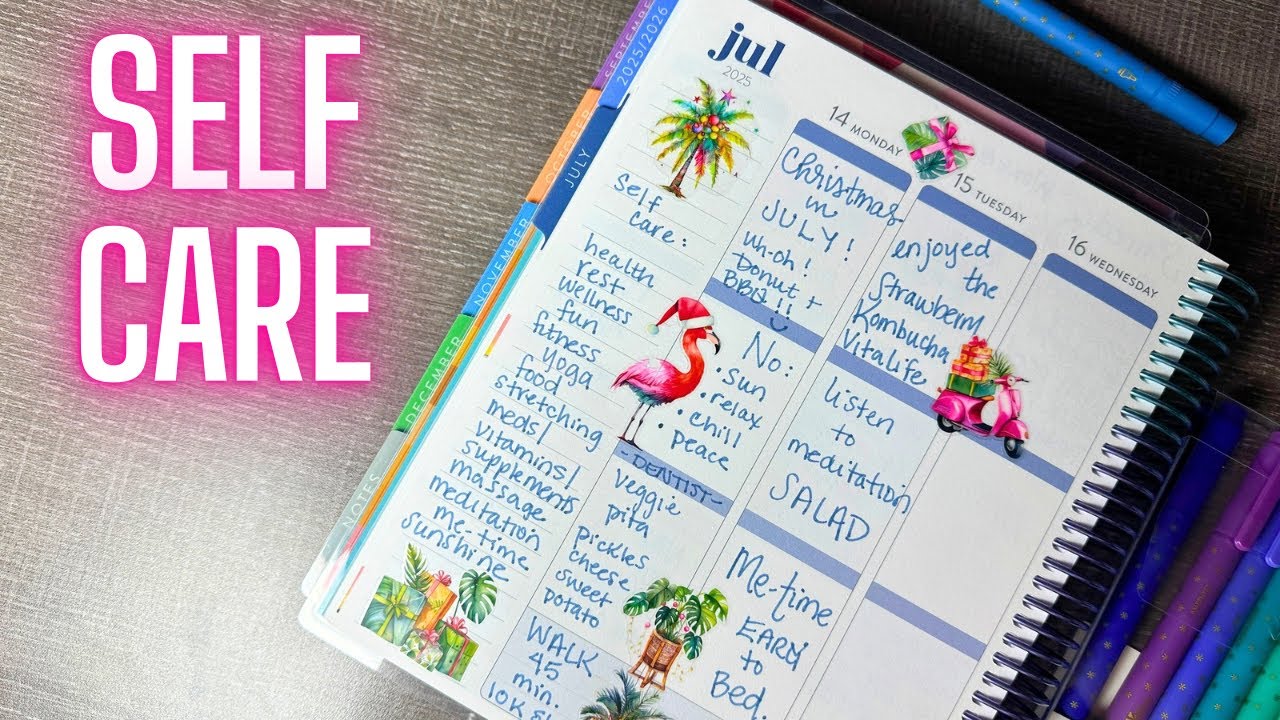 SELF
CARE
2025/2026
OCTOBER
JULY
NOVEMBER
DECEMBER
NOTES
jul
2025
Self
care:
health
rest
wellness
fun
fitness
yoga
food
stretching
meds/
vitamins/
supplements
massage
meditation
me-time
sunshine
14 MONDAY
Christmas
in
JULY!
uh-oh!
Donut +
BBQ!!
No:
• sun
• relax
• chill
• peace
- DENTIST -
veggie
pita
pickles
cheese
sweet
potato
WALK
45
min.
15 TUESDAY
enjoyed
the
Strawberry
Kombucha
VitaLife
listen
to
meditation
SALAD
Me-time
EARLY
to
Bed.
16 WEDNESDAY